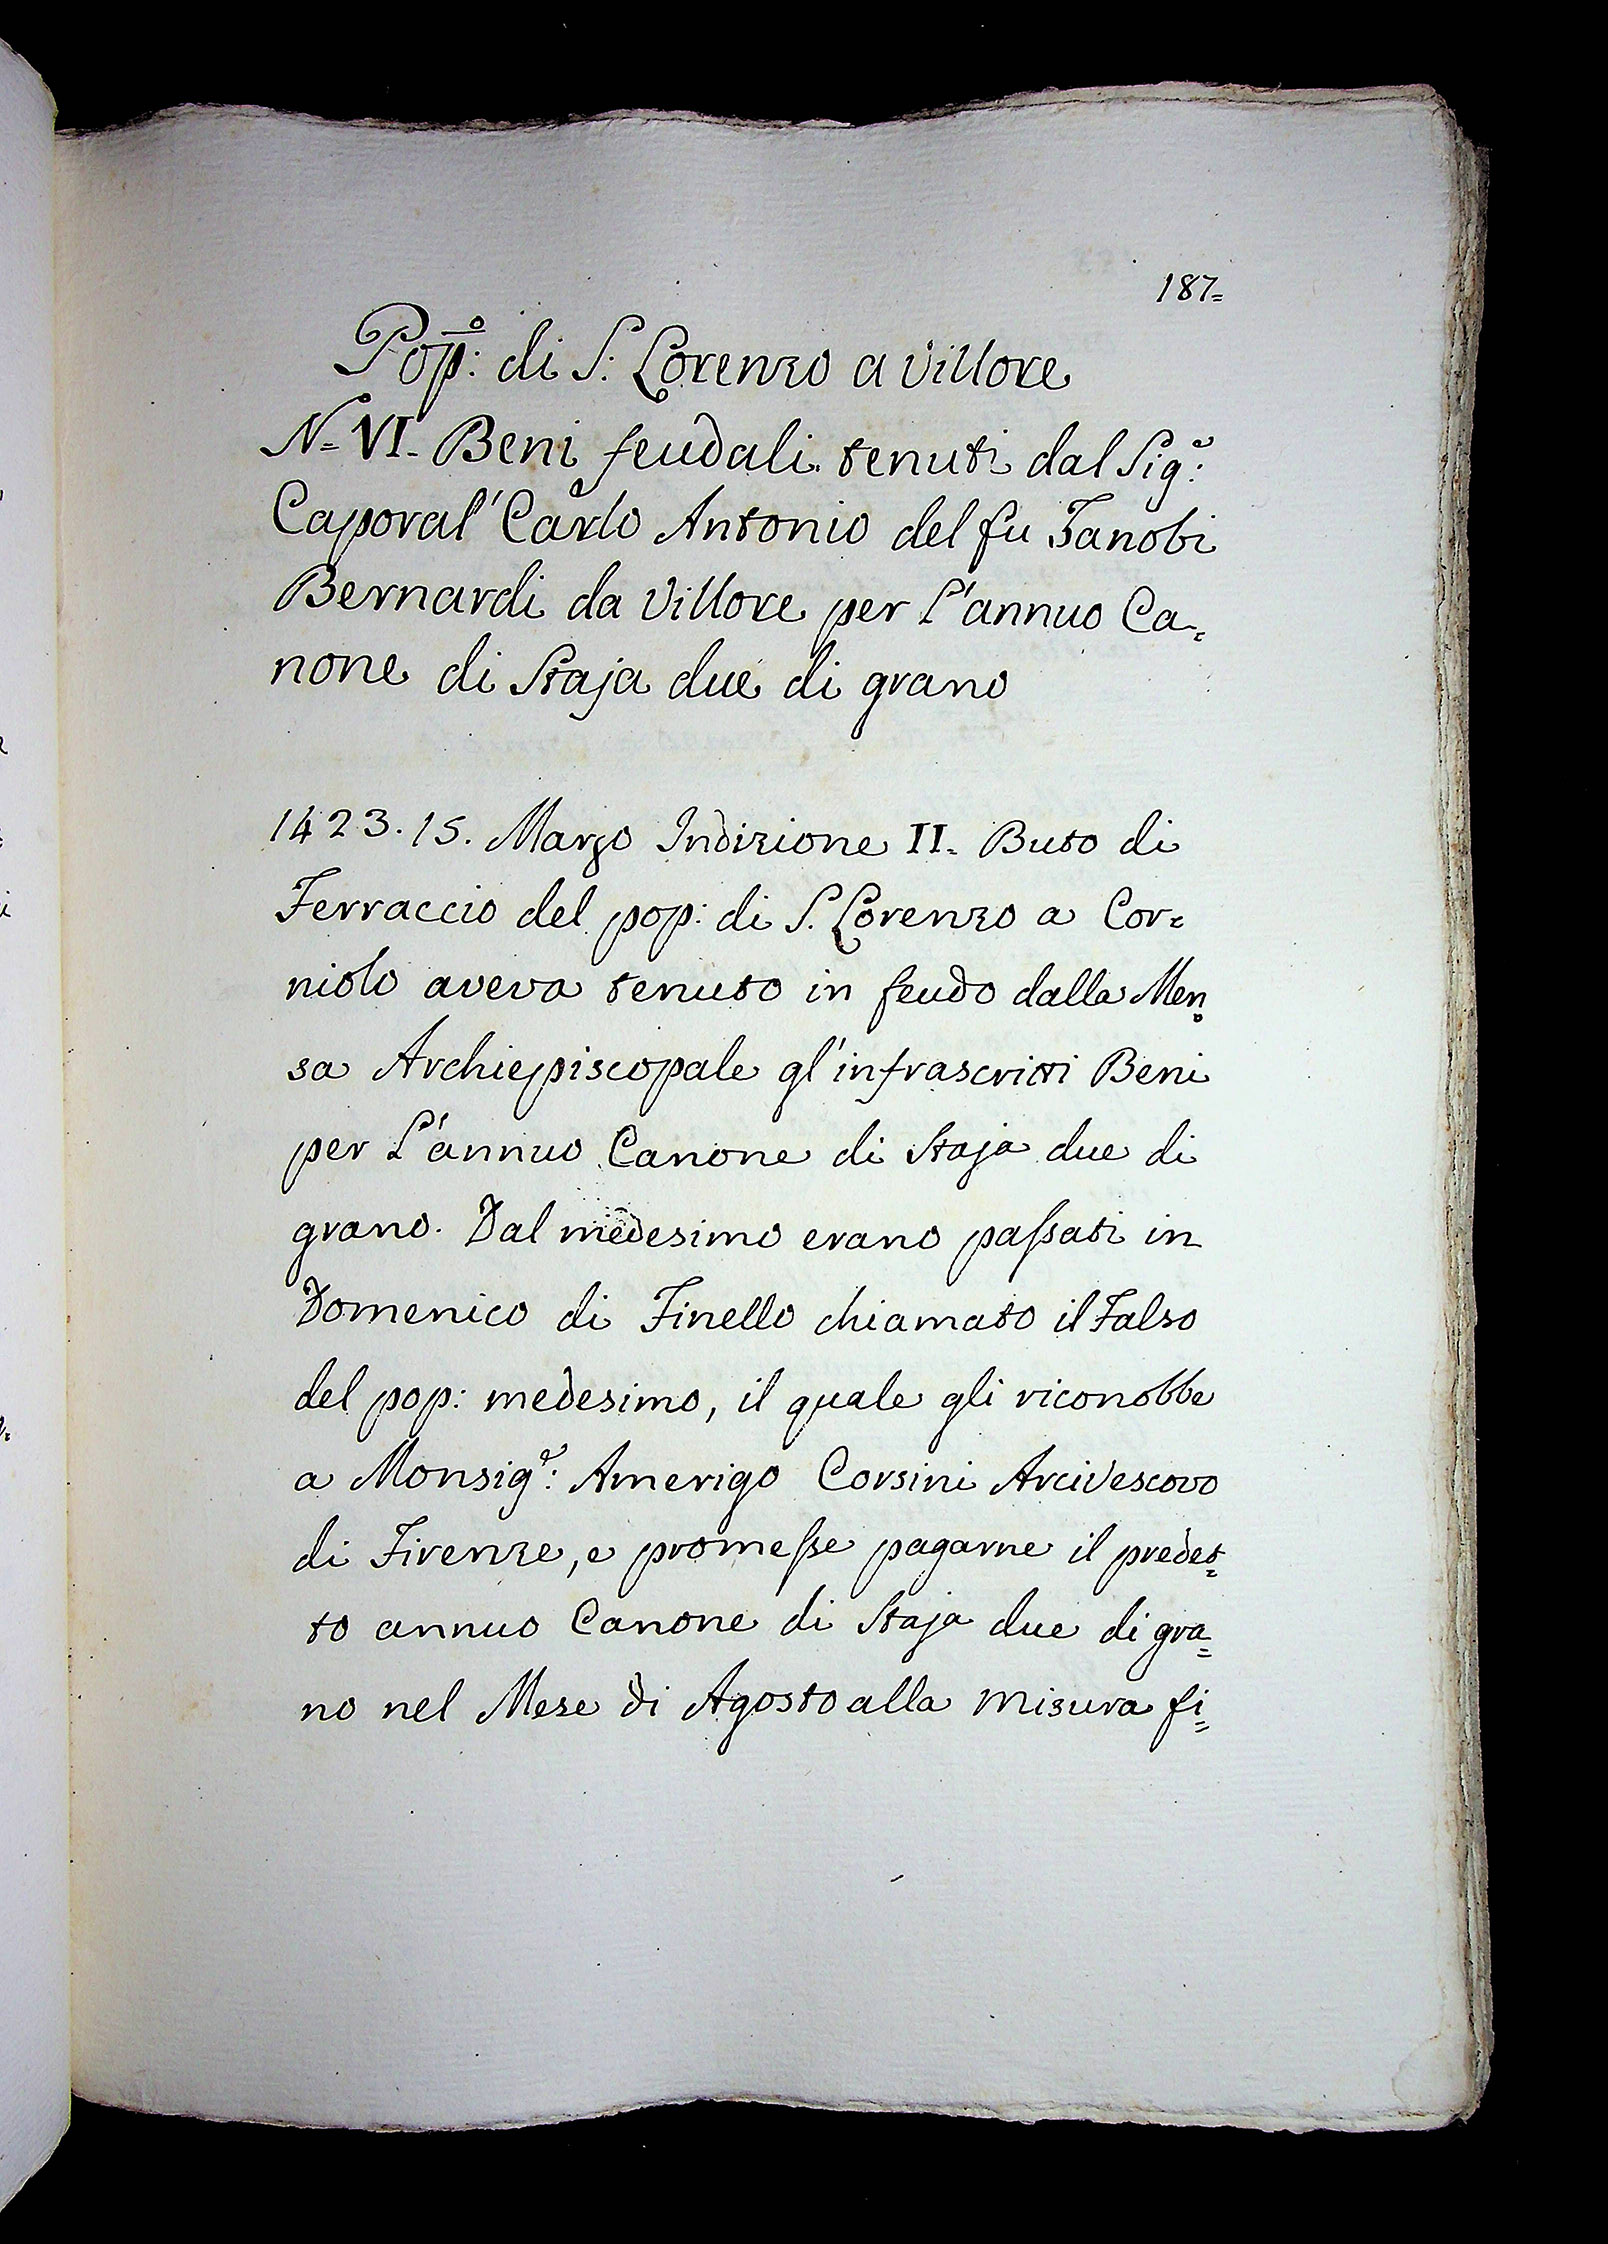 187=
Pop:º di S: Lorenzo a Villore
N= VI. Beni feudali tenuti dal Sigr:
Caporal' Carlo Antonio del fu Zanobi
Bernardi da Villore per l'annuo Ca=
none di Staja due di grano
1423. 15. Marzo Indizione II. Buto di
Ferraccio del pop: di S. Lorenzo a Cor=
niolo aveva tenuto in feudo dalla Men=
sa Archiepiscopale gl'infrascritti Beni
per l'annuo Canone di Staja due di
grano. Dal medesimo erano passati in
Domenico di Finello chiamato il Falso
del pop: medesimo, il quale gli riconobbe
a Monsigr: Amerigo Corsini Arcivescovo
di Firenze, e promesse pagarne il predet=
to annuo Canone di Staja due di gra=
no nel Mese di Agosto alla misura fi=